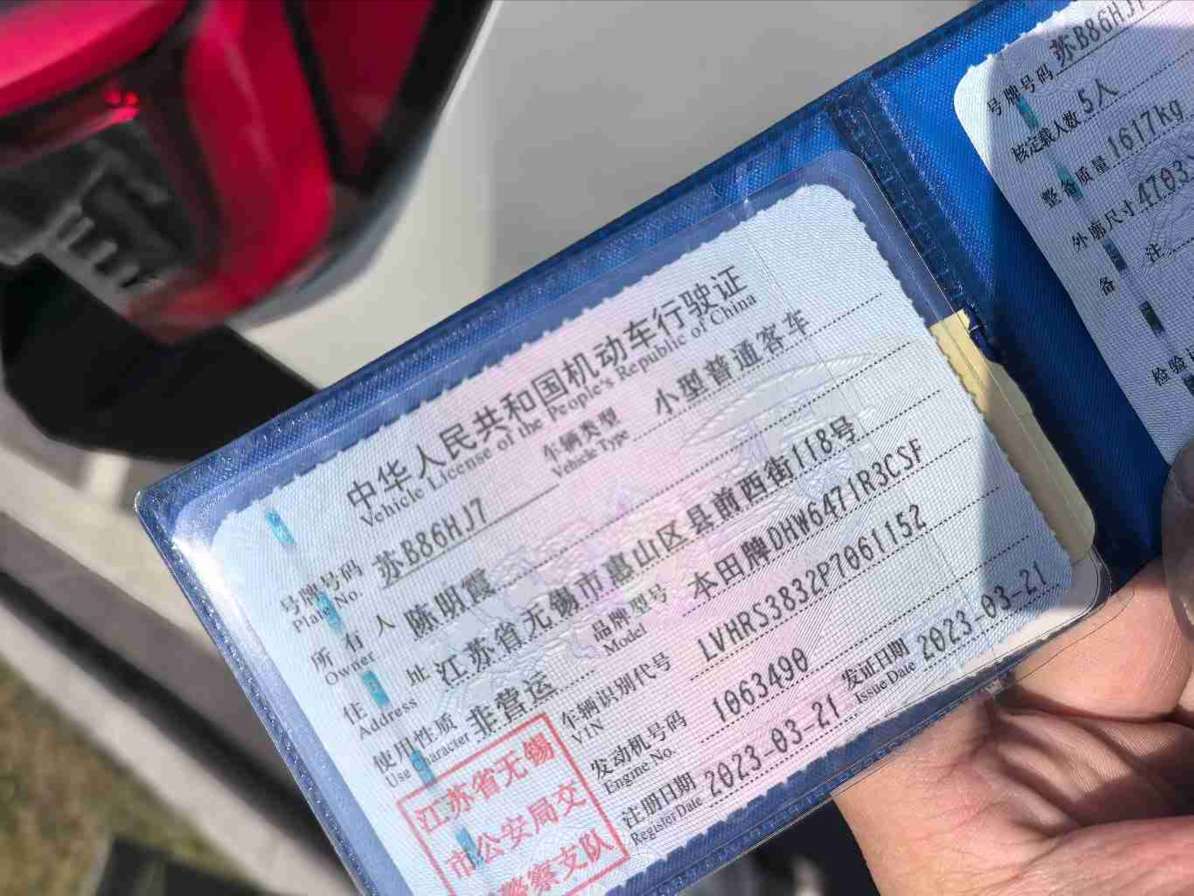 中华人民共和国机动车行驶证
Vehicle License of the People's Republic of China
号牌号码 苏B86HJ7 车辆类型 小型普通客车
Plate No. Vehicle Type
所有人 陈明霞
Owner
住址 江苏省无锡市惠山区县前西街118号
Address
使用性质 非营运 品牌型号 本田牌DHW6471R3CSF
Use Character Model
车辆识别代号 LVHRS3832P7061152
VIN
发动机号码 1063490
Engine No.
注册日期 2023-03-21 发证日期 2023-03-21
Register Date Issue Date
江苏省无锡
市公安局交
警察支队
号牌号码 苏B86HJ7
核定载人数 5人
整备质量 1617kg
外廓尺寸 4703
备注
检验